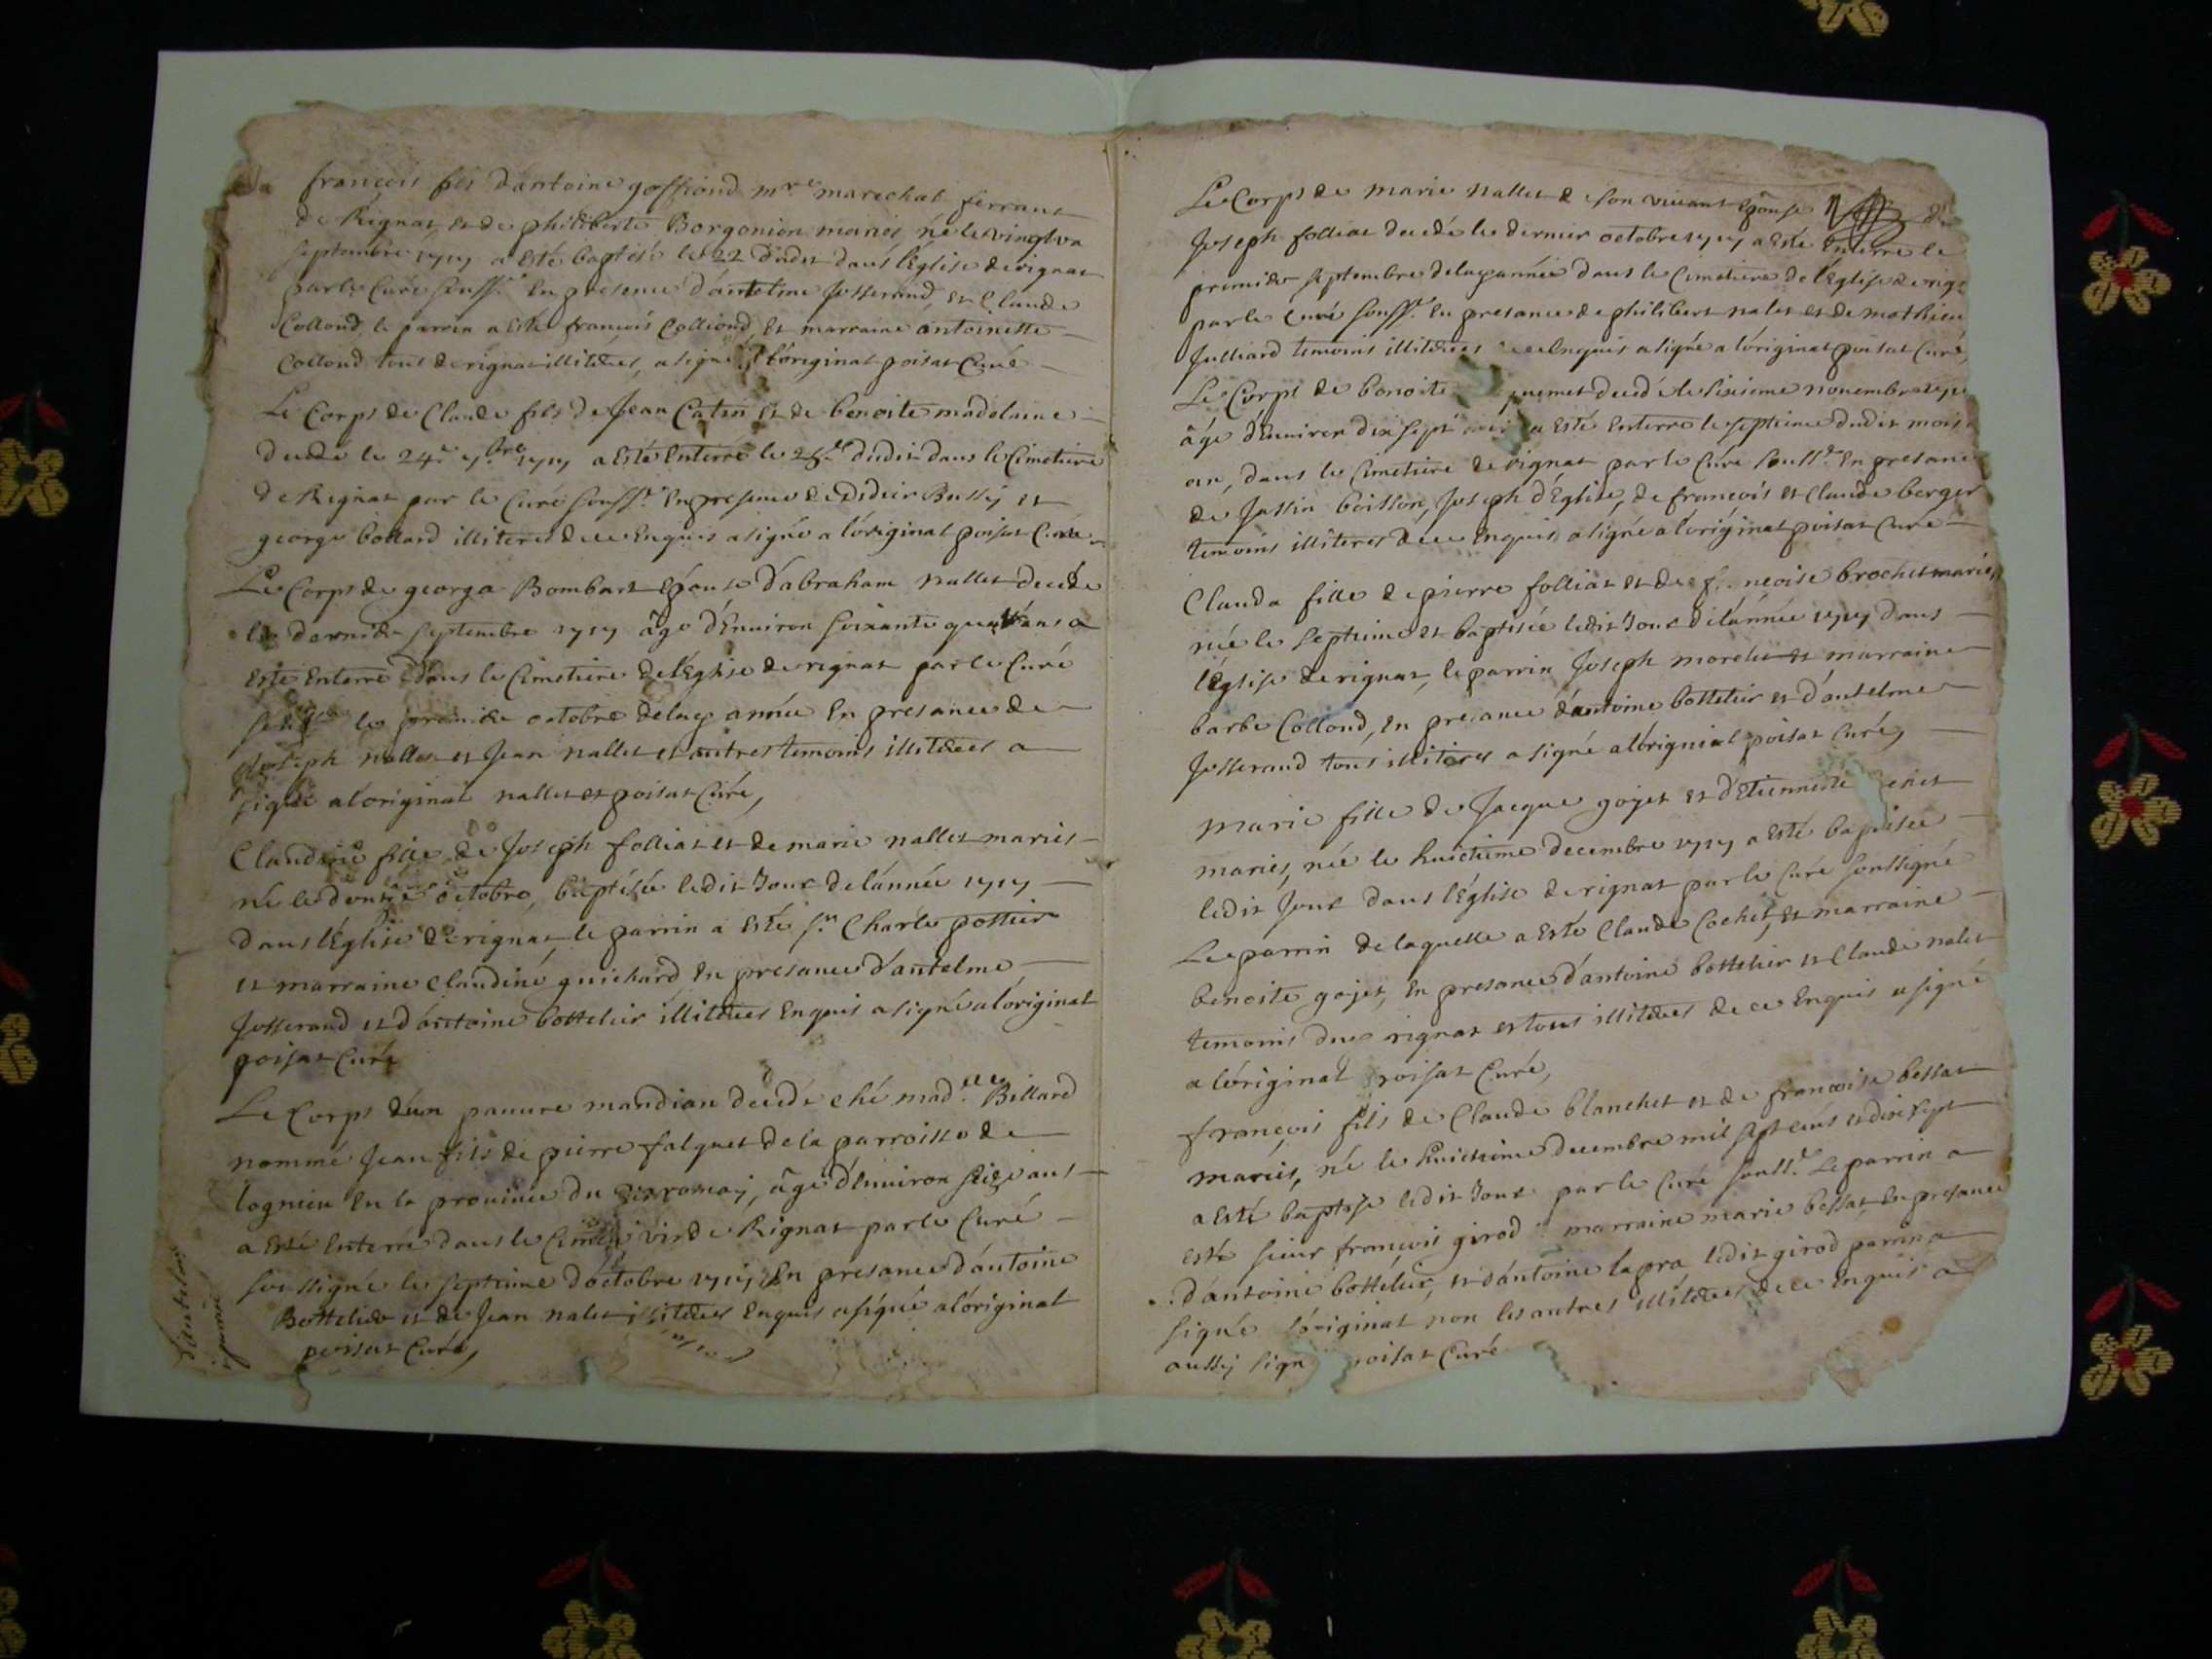 françois fils d'antoine goffiond m.re marechal ferrant
de Rignat et de philiberte Borgonion mariés, né le vingt un
septembre 1717 a Esté baptisé le 22 dudit dans l'Eglise de rignat
par le Curé souss.é En presence d'antelme Josserand, et Claude
Collond, le parrin a Esté françois Colliond Et marraine antoinette
Collond tous de rignat illiteres, a signé a l'original poisat Curé
Le Corps de Claude fils de Jean Catin et de benoite madelaine
decedé le 24.e 7.bre 1717 a Esté Enterré le 25.e dudit dans le Cimetiere
de Rignat par le Curé souss.é En presence de Didier Bussy et
george bollard illiteres de ce Enquis a signé a l'original poisat Curé
Le Corps de georga Bombart Epouse d'abraham nallet decedé
le dernier septembre 1717 âgé d'Environ soixante quatre ans a
Esté Enterré dans le Cimetiere de l'Eglise de rignat par le Curé
le premier octobre de lad. année En presance de
Joseph nallet et Jean nallet et autres temoins illiteres a
signé a l'original nallet et poisat Curé,
Claudine fille de Joseph folliat et de marie nallet mariés
né le octobre, baptisée ledit Jour de l'année 1717
dans l'Eglise de rignat, le parrin a Esté s.r Charle pottier
et marraine Claudine guichard, En presance d'antelme
Josserand et d'antoine bottelier illiteres Enquis a signé a l'original
poisat Curé
Le Corps d'un pauvre mandian decedé ché mad.elle Billard
nommé Jean fils de pierre falquet de la parroisse de
lagnieu En la province du , âgé d'Environ seize ans
a Esté Enterré dans le de Rignat par le Curé
soussigné le septieme d'octobre 1717 En presance d'antoine
Bottelier et de Jean nalet illiteres Enquis a signé a l'original
poisat Curé,
Le Corps de marie nallet de son vivant Epouse de
Joseph folliat decedé le dernier octobre 1717 a Esté Enterré le
premier septembre de lad. année dans le Cimetiere de l'Eglise de rig
par le Curé souss.é En presance de philibert nalet et de mathieu
Julliard temoins illiteres de ce Enquis a signé a l'original poisat Curé,
Le Corps de benoite decedé le sixieme novembre
âgé d'Environ dix sept a Esté Enterré le septieme dudit mois
an, dans le Cimetiere de rignat par le Curé souss.é En presance
de Justin boisson, Joseph d'Eglise, de françois et Claude berger
temoins illiteres de ce Enquis a signé a l'original poisat Curé
Clauda fille de pierre folliat et de brochet mariés,
née le septieme et baptisée ledit Jour de l'année 1717 dans
l'Eglise de rignat, le parrin Joseph morelet et marraine
barbe Collond, En presance d'antoine bottelier et d'antelme
Josserand tous illiteres a signé a l'original poisat Curé,
marie fille de Jacque gojet et d'Etiennette
mariés, née le huictieme decembre 1717 a Esté baptisée
ledit Jour dans l'Eglise de rignat par le Curé soussigné
Le parrin de laquelle a Esté Claude Cochet, Et marraine
benoite gojet, En presance d'antoine bottelier et Claude nalet
temoins rignat et tous illiteres de ce Enquis a signé
a l'original poisat Curé,
françois fils de Claude blanchet et de francoise bessat
mariés, né le huictieme decembre mil sept cens et dix sept
a Esté baptisé ledit Jour par le Curé souss.é Le parrin a
esté sieur françois girod marraine marie bessat, En presance
d'antoine bottelier, et d'antoine lapra ledit girod parrin a
signé l'original non les autres illiteres de ce Enquis a
aussy sign poisat Curé